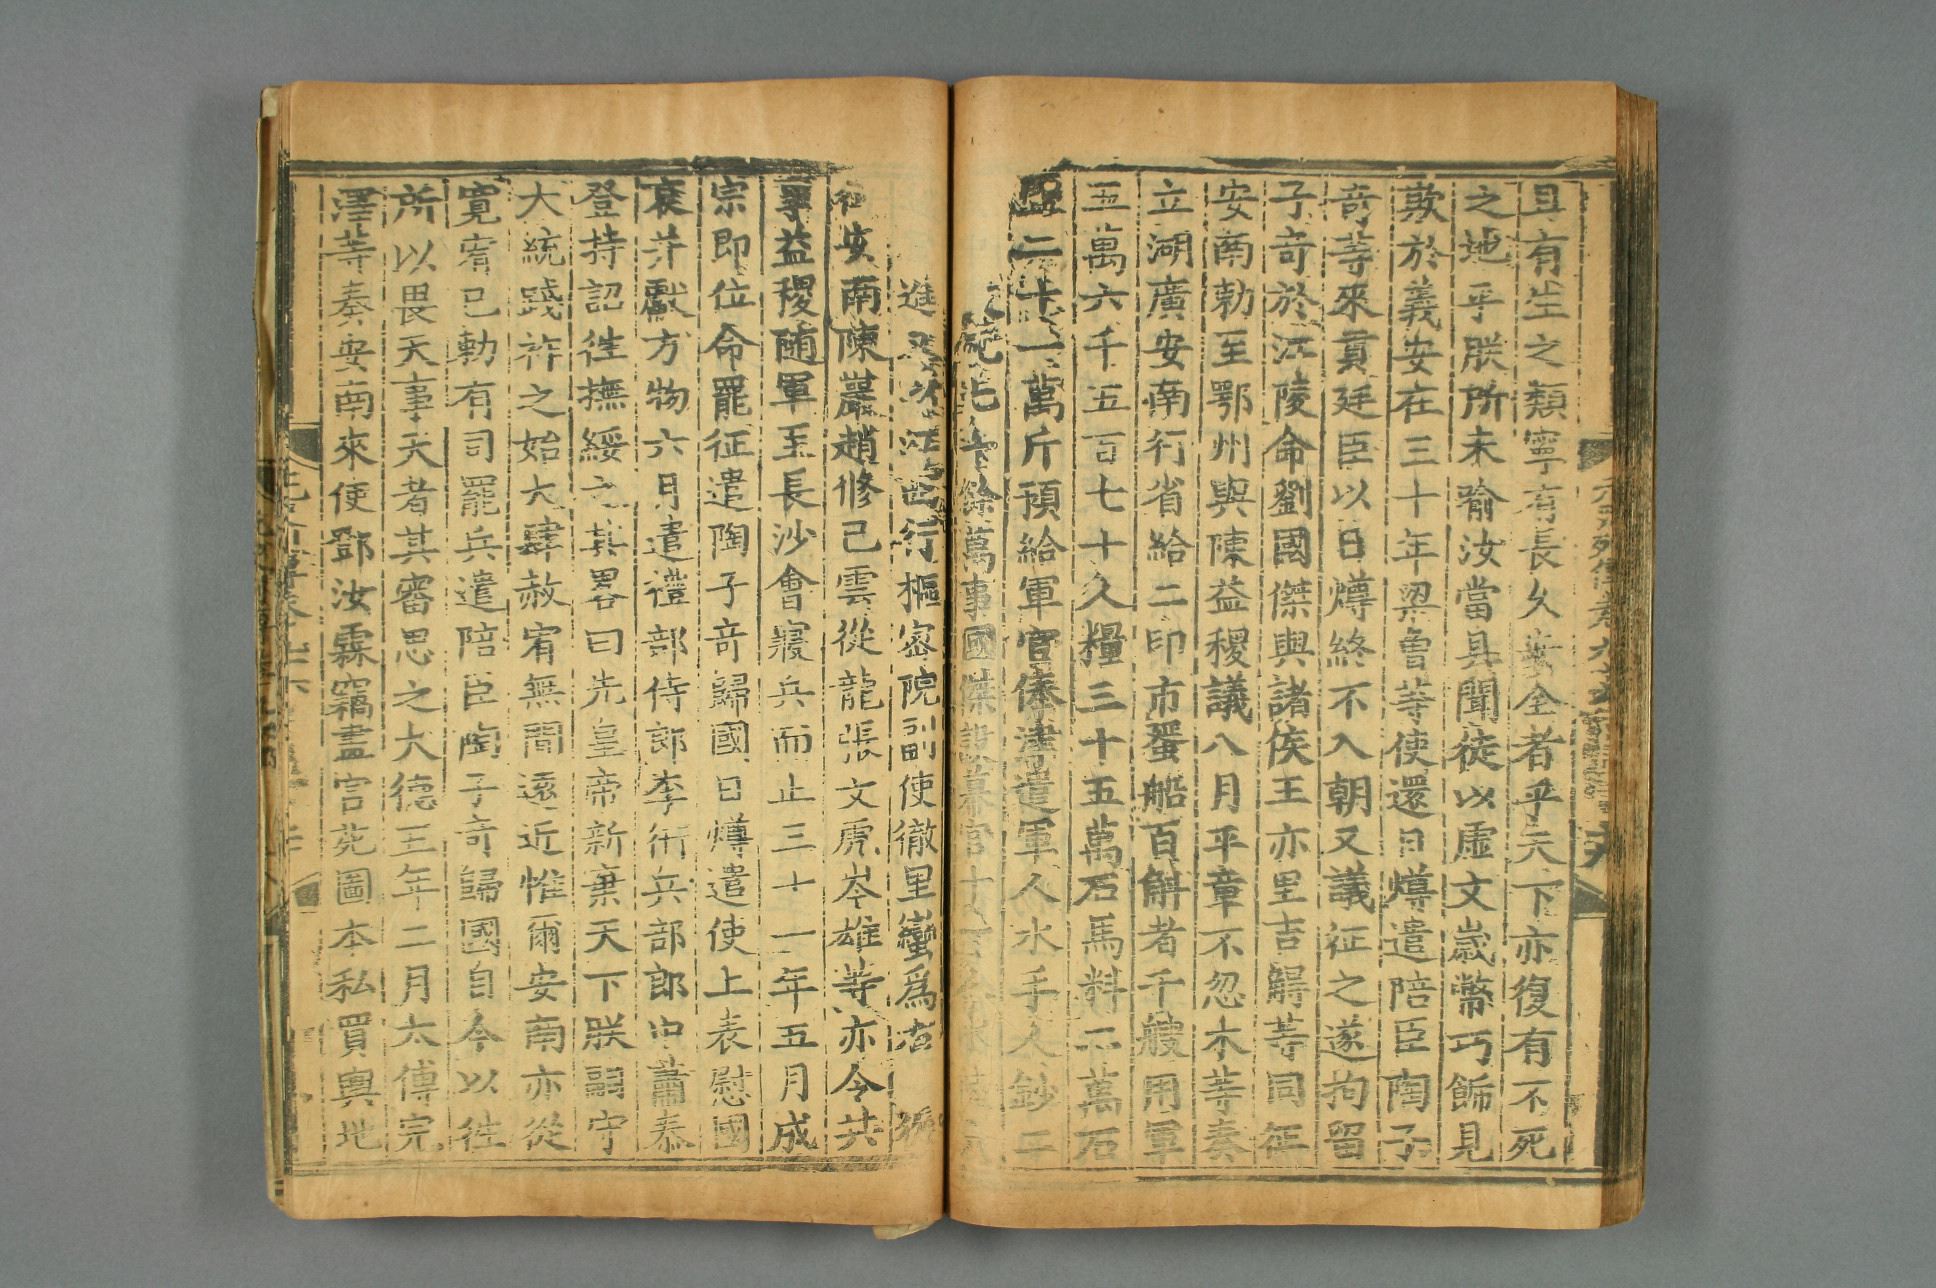 且有生之類寧有長久安全者乎天下亦復有不死
之地乎朕所未喻汝當具聞徒以虛文歲幣巧飾見
欺於義安在三十年梁曾等使還日燇遣陪臣陶子
竒等來貢廷臣以日燇終不入朝又議征之遂拘留
子竒於江陵命劉國傑與諸侯王亦里吉䚟等同征
安南勅至鄂州與陳益稷議八月平章不忽木等奏
立湖廣安南行省給二印市蜑船百斛者千艘用軍
五萬六千五百七十人糧三十五萬石馬料二萬石
二十一萬斤預給軍官俸津遣軍人水手人鈔二
七十餘萬事國傑設幕官十
進 行樞密院副使徹里蠻爲右
征安南陳巖趙修己雲從龍張文虎岑雄等亦令共
事益稷隨軍至長沙會寢兵而止三十一年五月成
宗即位命罷征遣陶子竒歸國日燇遣使上表慰國
哀并獻方物六月遣禮部侍郎李衎兵部郎中蕭泰
登持詔徃撫綏之其畧曰先皇帝新棄天下朕嗣守
大統踐祚之始大肆赦宥無間遠近惟爾安南亦從
寬宥已勅有司罷兵遣陪臣陶子竒歸國自今以徃
所以畏天事天者其審思之大德五年二月太傅完
澤等奏安南來使鄧汝霖竊畫宮苑圖本私買輿地